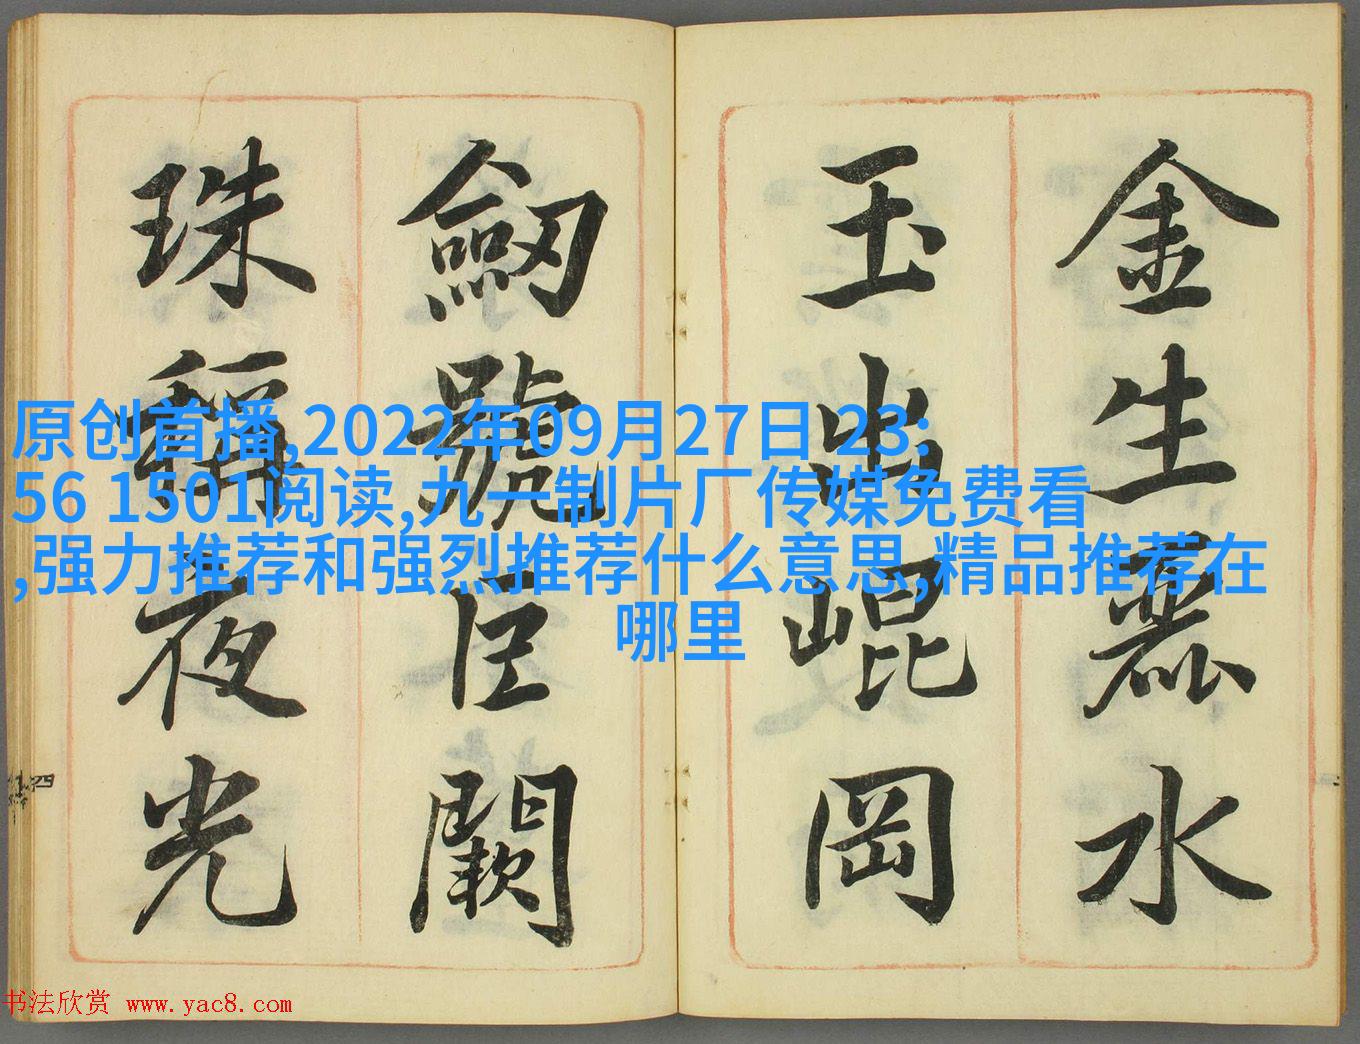 金生麗水
玉出崐岡
劒號巨闕
珠稱夜光
原创首播,2022年09月27日 23:
56 1501阅读,九一制片厂传媒免费看
,强力推荐和强烈推荐什么意思,精品推荐在
哪里
四
书法欣赏 www.yac8.com